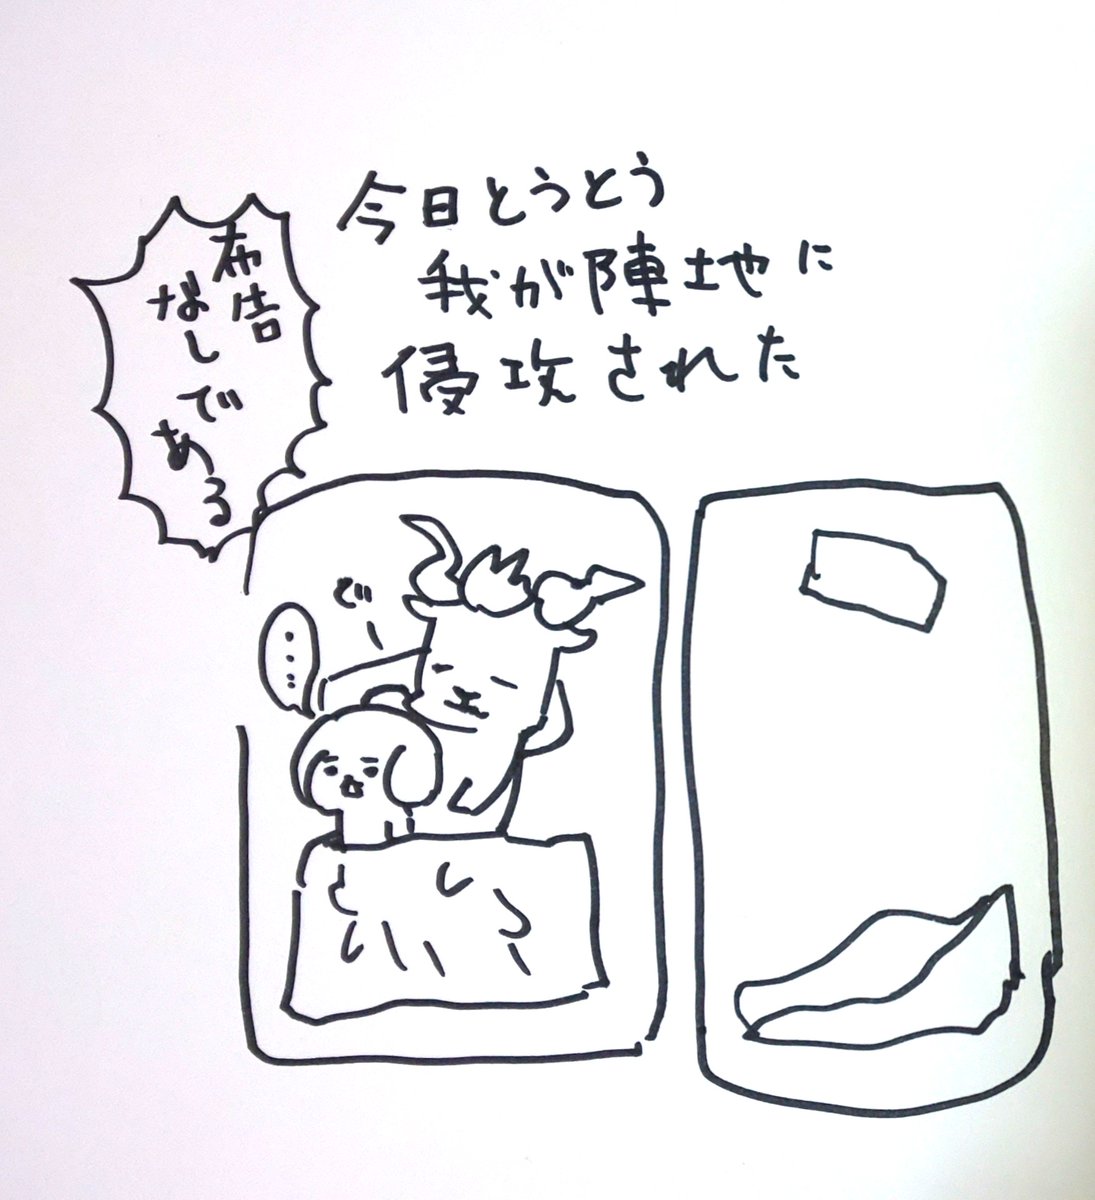 今日とうとう
我が陣地に
侵攻された
布告
なしである
で
…